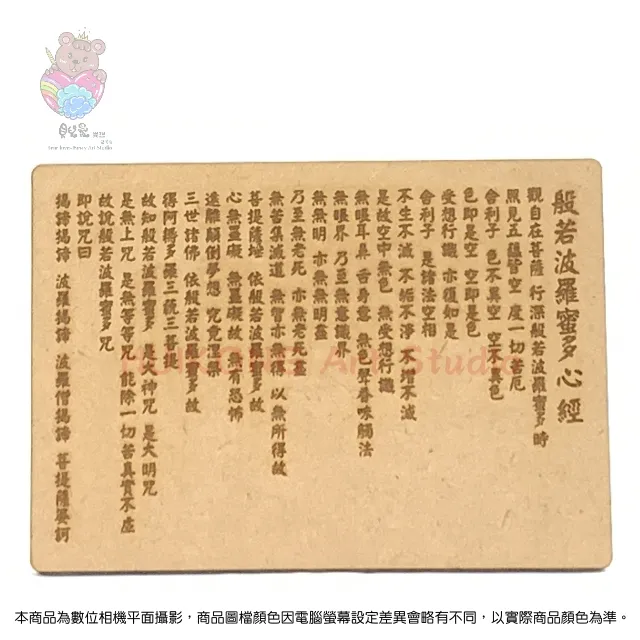 般若波羅蜜多心經
觀自在菩薩 行深般若波羅蜜多時
照見五蘊皆空 度一切苦厄
舍利子 色不異空 空不異色
色即是空 空即是色
受想行識 亦復如是
舍利子 是諸法空相
不生不滅 不垢不淨 不增不減
是故空中無色 無受想行識
無眼耳鼻舌身意 無色聲香味觸法
無眼界 乃至無意識界
無無明 亦無無明盡
乃至無老死 亦無老死盡
無苦集滅道 無智亦無得 以無所得故
菩提薩埵 依般若波羅蜜多故
心無罣礙 無罣礙故 無有恐怖
遠離顛倒夢想 究竟涅槃
三世諸佛 依般若波羅蜜多故
得阿耨多羅三藐三菩提
故知般若波羅蜜多 是大神咒 是大明咒
是無上咒 是無等等咒 能除一切苦真實不虛
故說般若波羅蜜多咒
即說咒曰
揭諦揭諦 波羅揭諦 波羅僧揭諦 菩提薩婆訶
Art Studio
本商品為數位相機平面攝影，商品圖檔顏色因電腦螢幕設定差異會略有不同，以實際商品顏色為準。